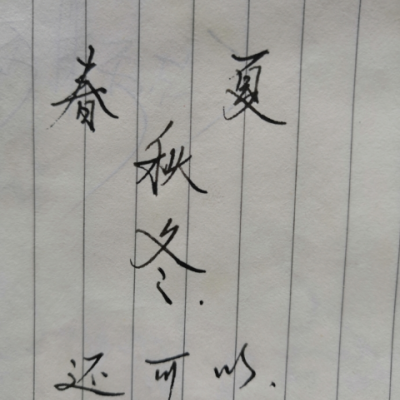 春 夏
秋
冬.
还可以.